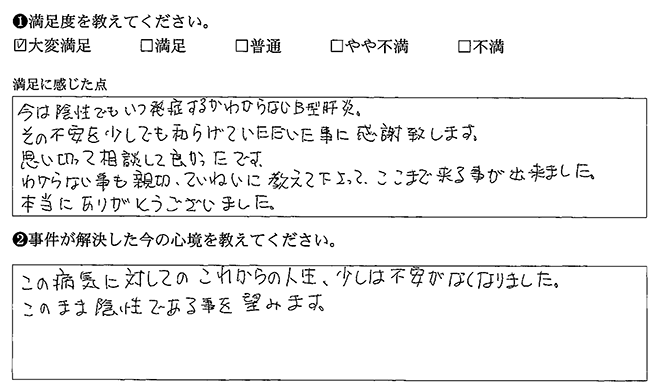 ❶満足度を教えてください。
☑大変満足 □満足 □普通 □やや不満 □不満
満足に感じた点
今は陰性でもいつ発症するかわからないB型肝炎。
その不安を少しでも和らげていただいた事に感謝致します。
思い切って相談して良かったです。
わからない事も親切、ていねいに教えて下さって、ここまで来る事が出来ました。
本当にありがとうございました。
❷事件が解決した今の心境を教えてください。
この病気に対してのこれからの人生、少しは不安がなくなりました。
このまま陰性である事を望みます。